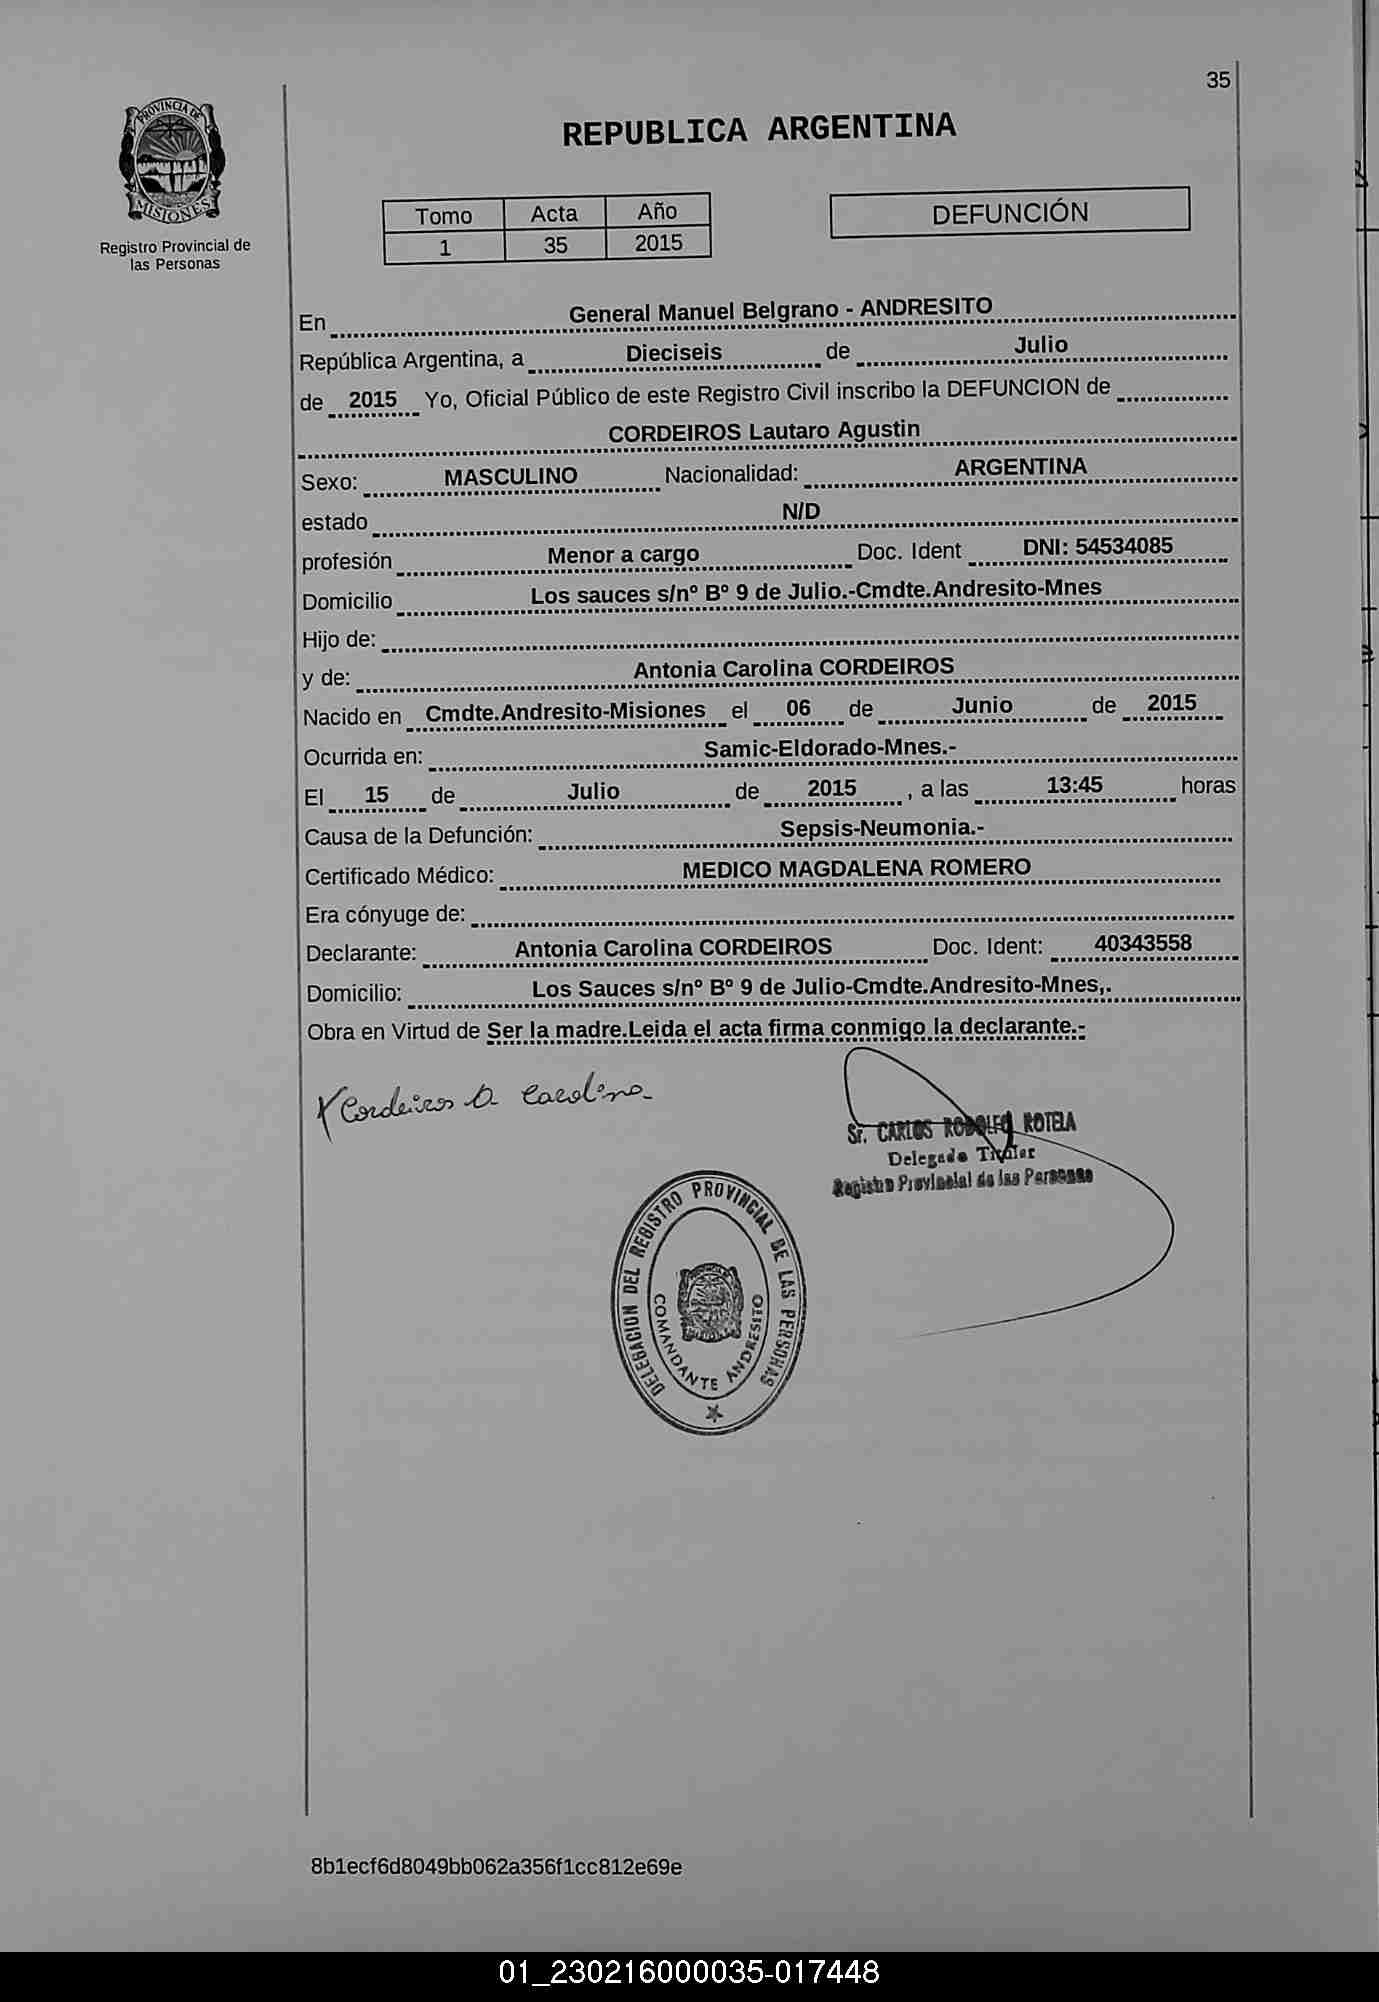 35
PROVINCIA DE
MISIONES
Registro Provincial de
las Personas
REPUBLICA ARGENTINA
Tomo Acta Año
1 35 2015
DEFUNCIÓN
En General Manuel Belgrano - ANDRESITO
República Argentina, a Dieciseis de Julio
de 2015 Yo, Oficial Público de este Registro Civil inscribo la DEFUNCION de
CORDEIROS Lautaro Agustin
Sexo: MASCULINO Nacionalidad: ARGENTINA
estado N/D
profesión Menor a cargo Doc. Ident DNI: 54534085
Domicilio Los sauces s/nº Bº 9 de Julio.-Cmdte.Andresito-Mnes
Hijo de:
y de: Antonia Carolina CORDEIROS
Nacido en Cmdte.Andresito-Misiones el 06 de Junio de 2015
Ocurrida en: Samic-Eldorado-Mnes.-
El 15 de Julio de 2015 , a las 13:45 horas
Causa de la Defunción: Sepsis-Neumonia.-
Certificado Médico: MEDICO MAGDALENA ROMERO
Era cónyuge de:
Declarante: Antonia Carolina CORDEIROS Doc. Ident: 40343558
Domicilio: Los Sauces s/nº Bº 9 de Julio-Cmdte.Andresito-Mnes,.
Obra en Virtud de Ser la madre.Leida el acta firma conmigo la declarante.-
X Cordeiros A. Carolina
Sr. CARLOS RODOLFO ROTELA
Delegado Titular
Registro Provincial de las Personas
DELEGACION DEL REGISTRO PROVINCIAL DE LAS PERSONAS
COMANDANTE ANDRESITO
8b1ecf6d8049bb062a356f1cc812e69e
01_230216000035-017448